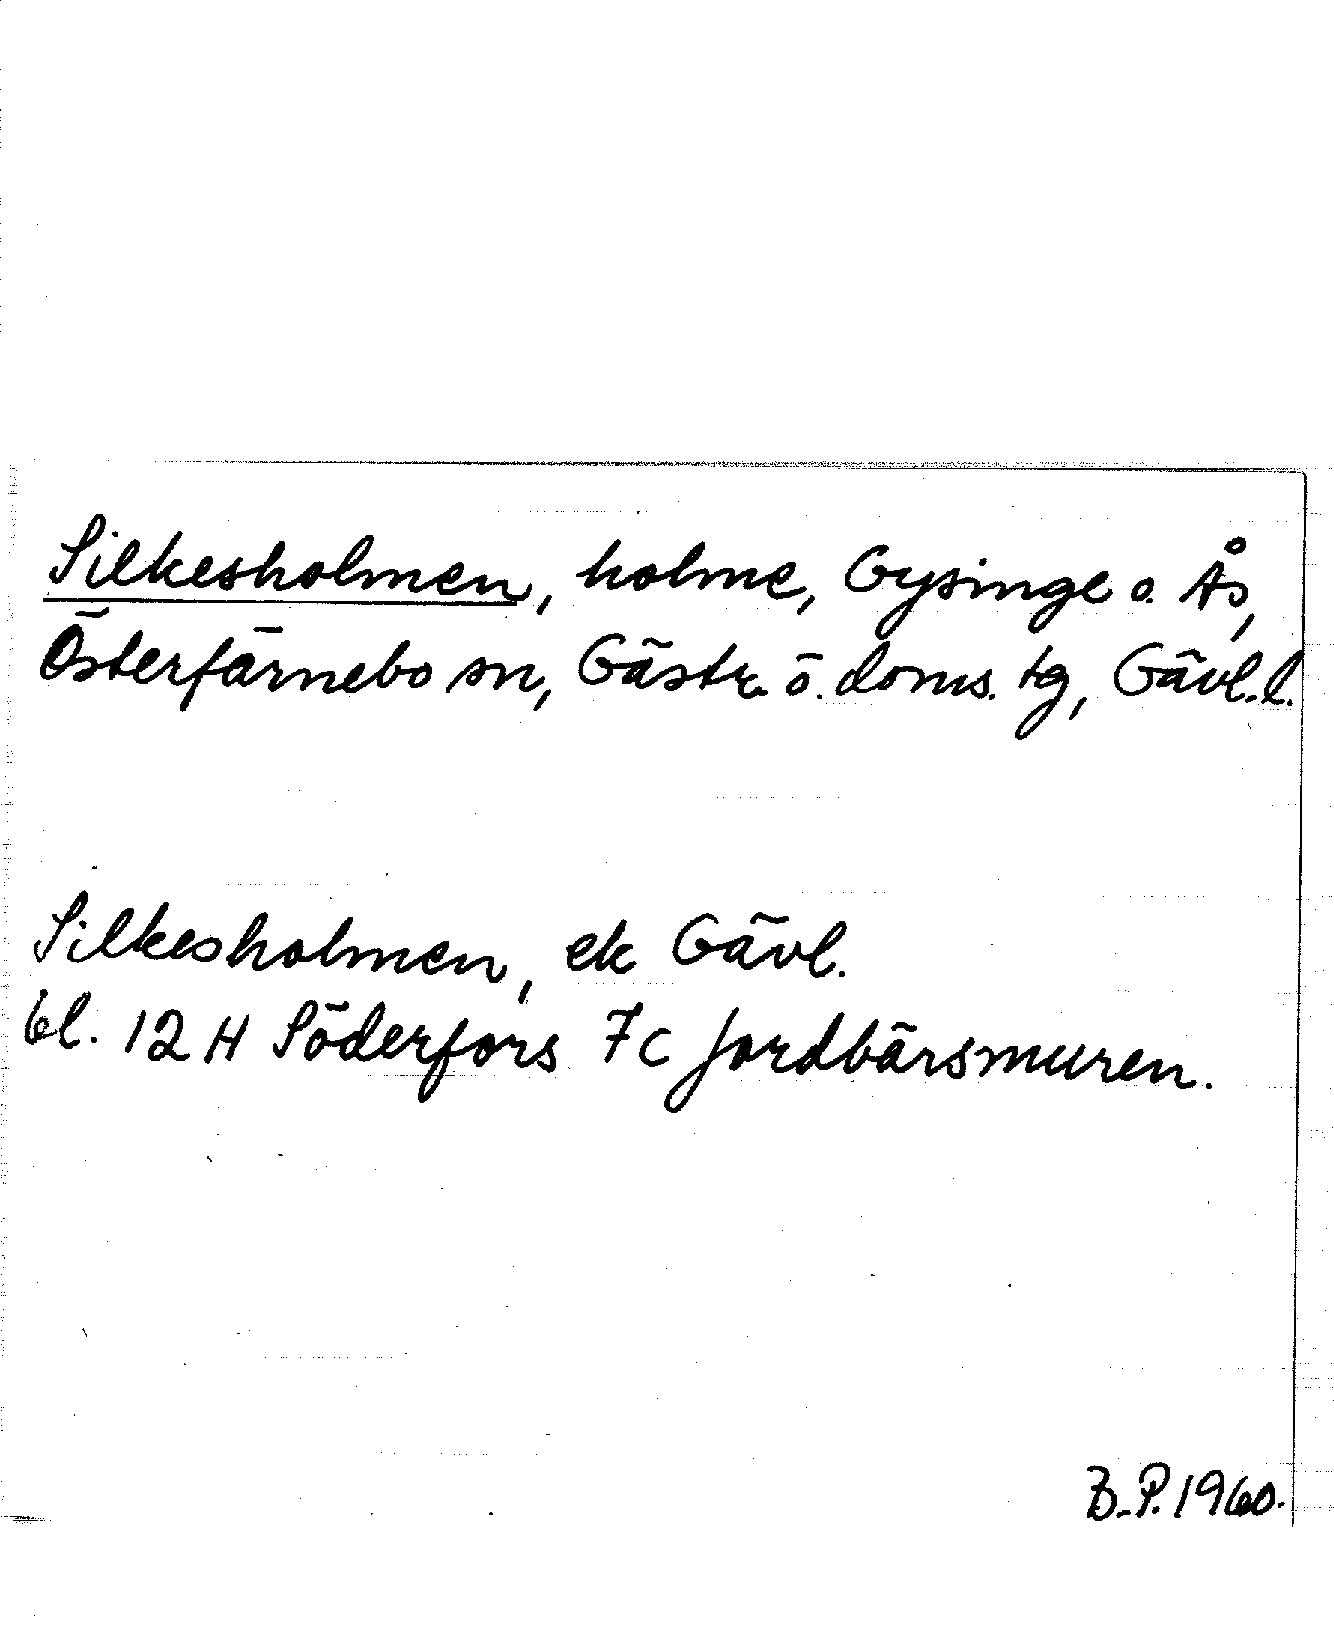 Silkesholmen, holme, Gysinge o. Ås,
Österfärnebo sn, Gästr. ö. doms. tg, Gävl. l.
Silkesholmen, ek Gävl.
bl. 12 H Söderfors 7c Jordbärsmuren.
B.P. 1960.